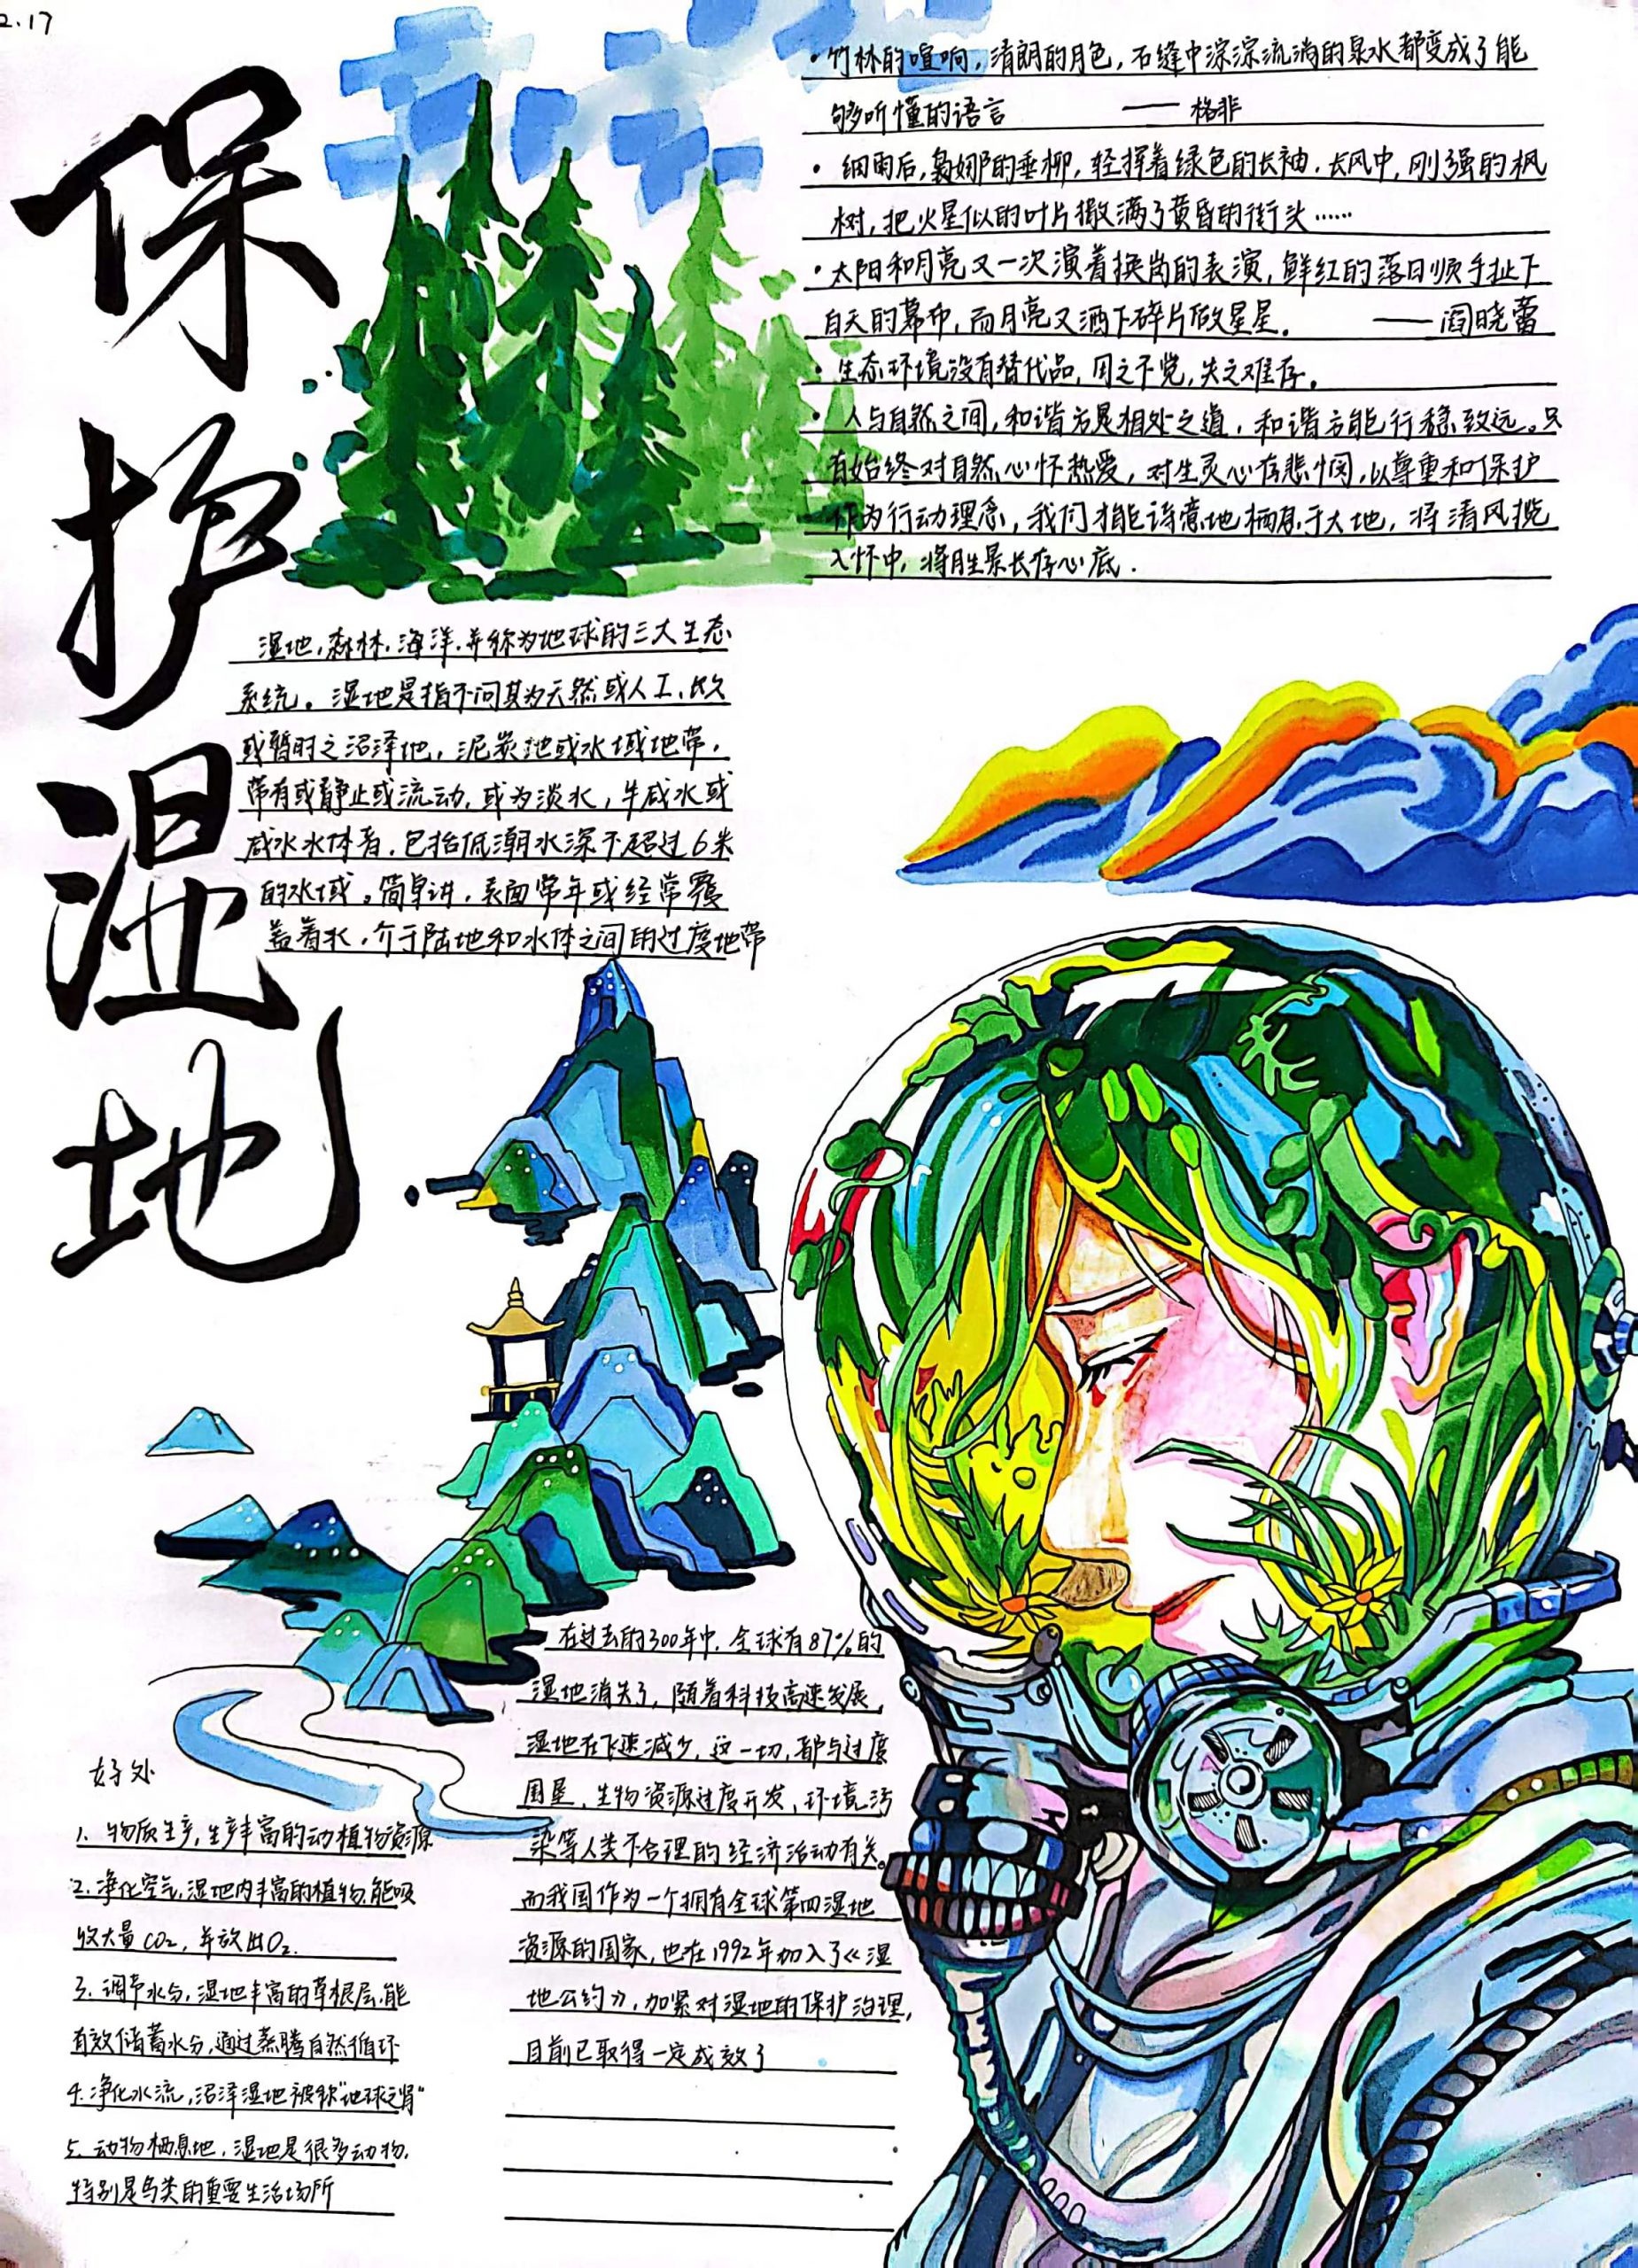 2.17
保护湿地
·竹林的喧响，清朗的月色，石缝中淙淙流淌的泉水都变成了能
够听懂的语言 —— 格非
·细雨后，袅娜的垂柳，轻挥着绿色的长袖。长风中，刚强的枫
树，把火星似的叶片撒满了黄昏的街头……
·太阳和月亮又一次演着换岗的表演，鲜红的落日顺手扯下
白天的幕布，而月亮又洒下碎片做星星。 —— 闫晓蕾
·生态环境没有替代品，用之不觉，失之难存。
·人与自然之间，和谐方是相处之道，和谐方能行稳致远。只
有始终对自然心怀热爱，对生灵心存悲悯，以尊重和保护
作为行动理念，我们才能诗意地栖息于大地，将清风揽
入怀中，将胜景长存心底．
湿地，森林，海洋，并称为地球的三大生态
系统。湿地是指不问其为天然或人工、长久
或暂时之沼泽地，泥炭地或水域地带，
带有或静止或流动，或为淡水，半咸水或
咸水水体者，包括低潮水深不超过6米
的水域。简单讲，表面常年或经常覆
盖着水，介于陆地和水体之间的过度地带
在过去的300年中，全球有87%的
湿地消失了，随着科技高速发展，
湿地在飞速减少，这一切，都与过度
围垦，生物资源过度开发，环境污
染等人类不合理的经济活动有关。
而我国作为一个拥有全球第四湿地
资源的国家，也在1992年加入了《湿
地公约》，加紧对湿地的保护治理，
目前已取得一定成效了
好处
1. 物质生产，生产丰富的动植物资源
2. 净化空气，湿地内丰富的植物，能吸
收大量CO₂，并放出O₂.
3. 调节水分，湿地丰富的草根层，能
有效储蓄水分，通过蒸腾自然循环
4. 净化水流，沼泽湿地被称"地球之肾"
5. 动物栖息地，湿地是很多动物，
特别是鸟类的重要生活场所